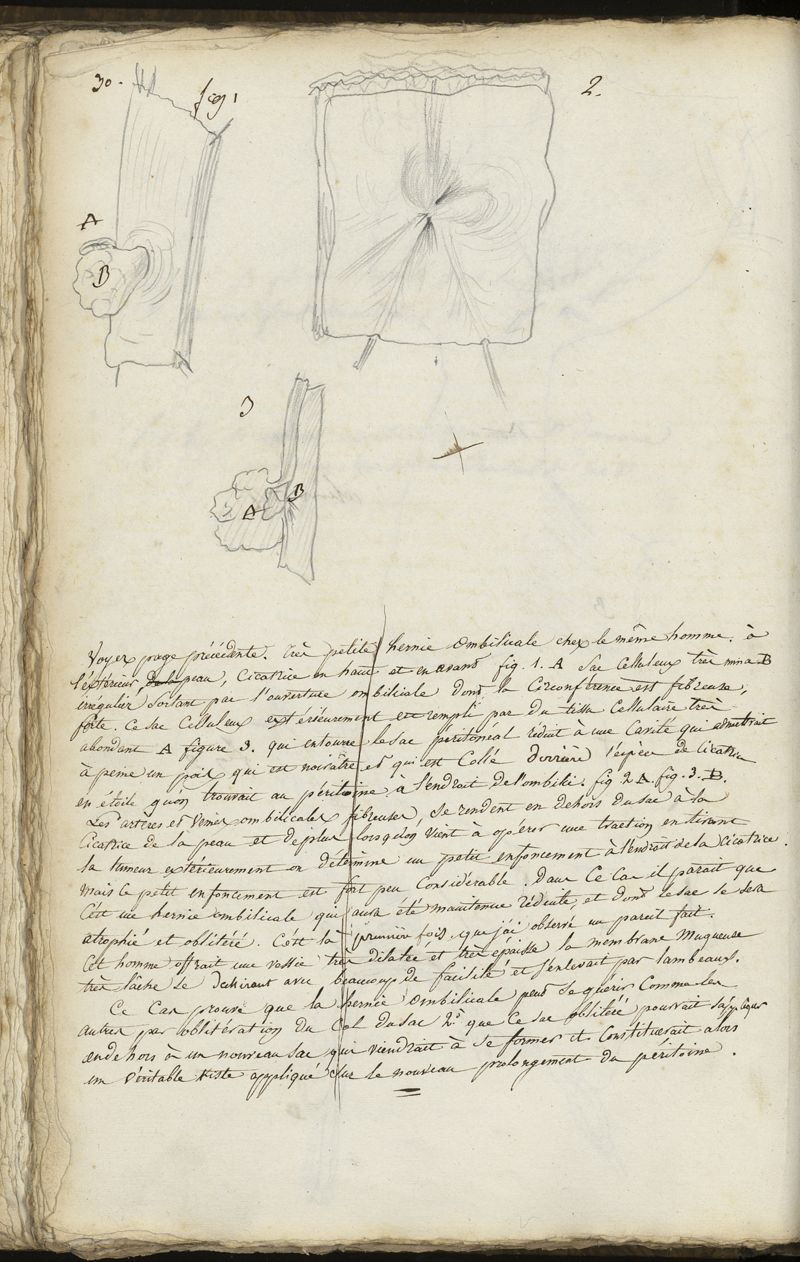 30.
fig 1
2.
A
B
3
B
A
Voyez page précédente. très petite hernie ombilicale chez le même homme. à
l'extérieur de la peau, Cicatrice en haut et en avant fig. 1. A Sac Celluleux très mince B
irrégulier sortant par l'ouverture ombilicale dont la Circonférence est fibreuse,
forte. Ce sac Celluleux extérieurement est rempli par du tissu Cellulaire très
abondant A figure 3. qui entoure le sac péritonéal réduit à une Cavité qui admettrait
à peine un pois qui est noirâtre et qui est Collé derrière l'espèce de Cicatrice
en étoile qu'on trouvait au péritoine à l'endroit de l'ombilic. fig 2 A. fig. 3. B.
Les artères et Veines ombilicales fibreuses, se rendent en dehors du sac à la
Cicatrice de la peau et de plus lorsqu'on vient à opérer une traction en tirant
la tumeur extérieurement on détermine un petit enfoncement à l'endroit de la Cicatrice.
mais ce petit enfoncement est fort peu Considérable. Dans Ce Cas il paraît que
C'est une hernie ombilicale qui aura été maintenue réduite et dont le sac se sera
atrophié et oblitéré. C'est la première fois que j'ai observé un pareil fait.
Cet homme offrait une vessie très dilatée et très épaisse la membrane Muqueuse
très lâche se déchirant avec beaucoup de facilité et s'enlevait par lambeaux.
Ce Cas prouve que la hernie Ombilicale peut se guérir Comme les
autres par oblitération du Col du sac 2.° que Ce sac oblitéré pourrait s'appliquer
en dehors à un nouveau sac qui viendrait à se former et Constituerait alors
un véritable Kiste appliqué sur le nouveau prolongement du péritoine.